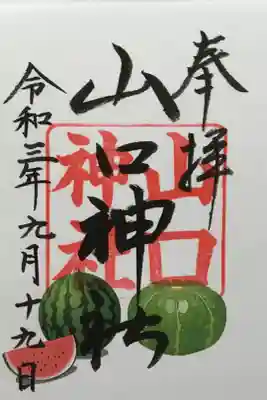 奉拝
山口神社
山口
神社
令和三年九月十九日